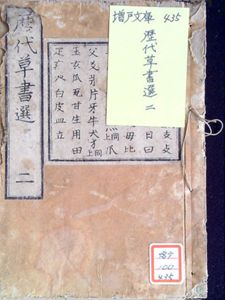 増戸文庫 435
歴代草書選 二
歷代草書選 二
支攴
日曰
毋比
灬同上爪
父爻爿片牙牛犬犭同上
玄瓜瓦甘生用田
疋疒癶白皮皿立
100
435